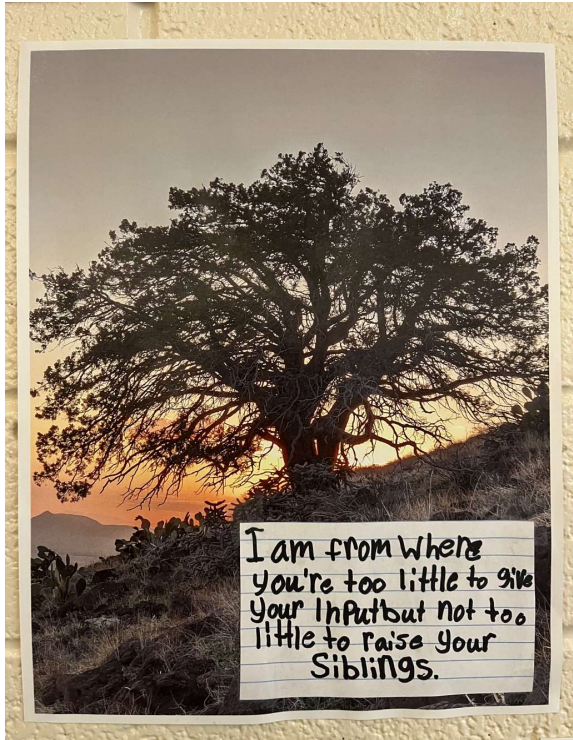 I am from where
you're too little to give
your input but not too
little to raise your
Siblings.